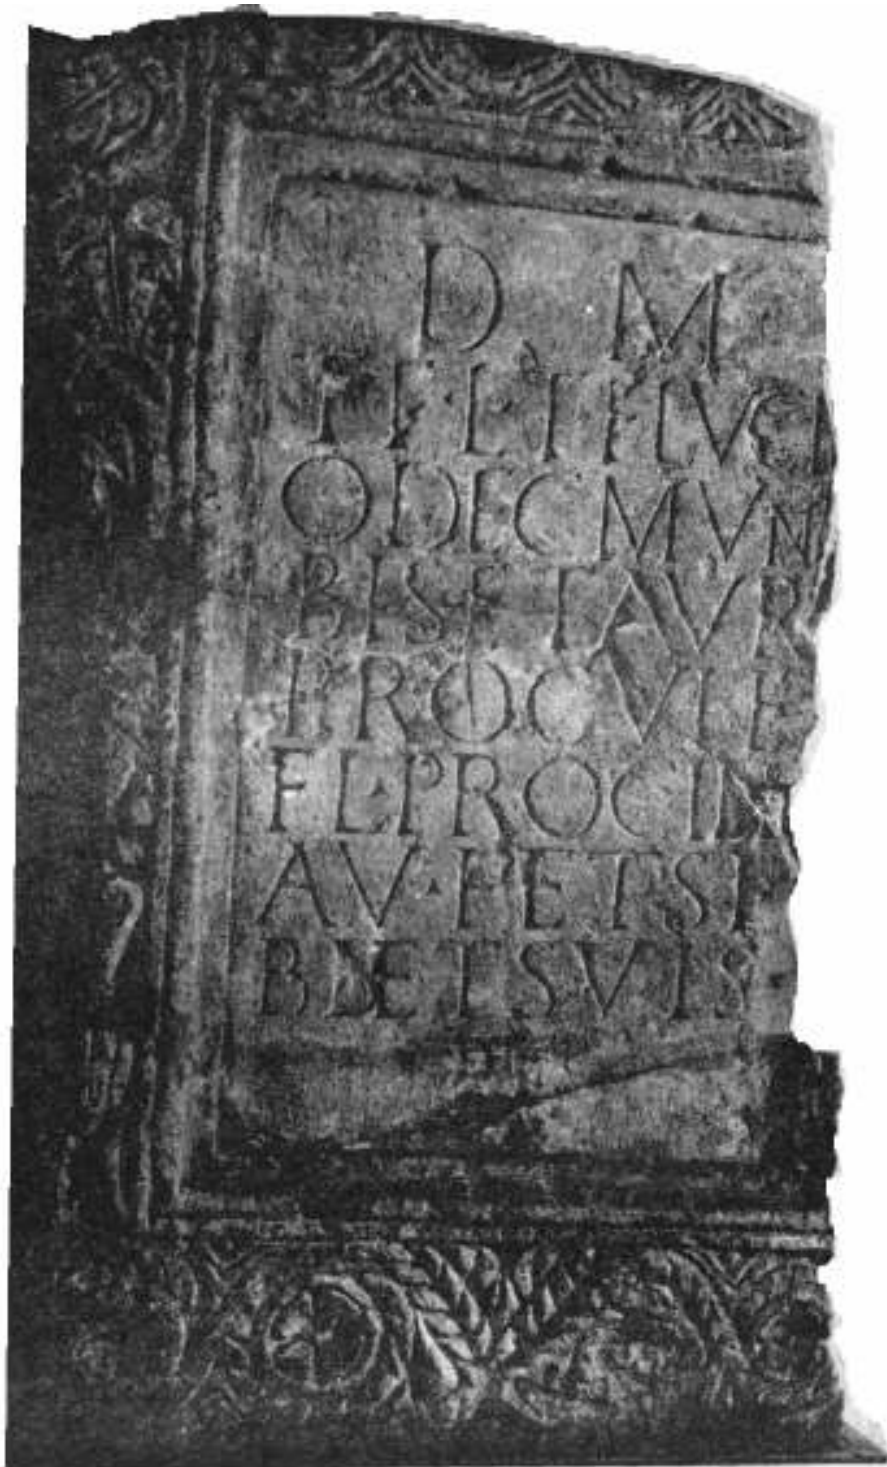 D M
TI · L · TI FLVCN
O DEC MVN
BIS · ET AVR
PROCVLE
FL · PROCIN
AV · P · ET SI
BI ET SVIS